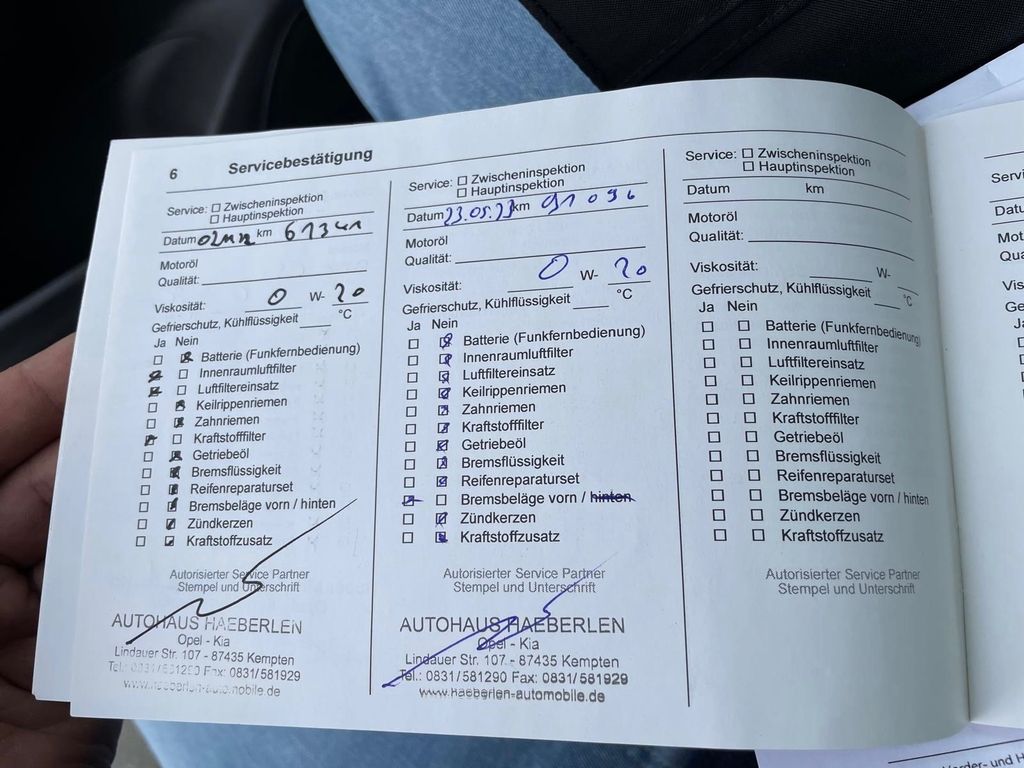 6 Servicebestätigung
Service: Zwischeninspektion
Hauptinspektion
Datum km
Motoröl
Qualität:
Viskosität: 0 W- 20
Gefrierschutz, Kühlflüssigkeit °C
Ja Nein
Batterie (Funkfernbedienung)
Innenraumluftfilter
Luftfiltereinsatz
Keilrippenriemen
Zahnriemen
Kraftstofffilter
Getriebeöl
Bremsflüssigkeit
Reifenreparaturset
Bremsbeläge vorn / hinten
Zündkerzen
Kraftstoffzusatz
Autorisierter Service Partner
Stempel und Unterschrift
AUTOHAUS HAEBERLEN
Opel - Kia
Lindauer Str. 107 - 87435 Kempten
Tel.: 0831/581290 Fax: 0831/581929
www.haeberlen-automobile.de
Service: Zwischeninspektion
Hauptinspektion
Datum 23.05.23 km 91 096
Motoröl
Qualität:
Viskosität: 0 W- 20
Gefrierschutz, Kühlflüssigkeit °C
Ja Nein
Batterie (Funkfernbedienung)
Innenraumluftfilter
Luftfiltereinsatz
Keilrippenriemen
Zahnriemen
Kraftstofffilter
Getriebeöl
Bremsflüssigkeit
Reifenreparaturset
Bremsbeläge vorn / hinten
Zündkerzen
Kraftstoffzusatz
Autorisierter Service Partner
Stempel und Unterschrift
AUTOHAUS HAEBERLEN
Opel - Kia
Lindauer Str. 107 - 87435 Kempten
Tel.: 0831/581290 Fax: 0831/581929
www.haeberlen-automobile.de
Service: Zwischeninspektion
Hauptinspektion
Datum km
Motoröl
Qualität:
Viskosität: W-
Gefrierschutz, Kühlflüssigkeit °C
Ja Nein
Batterie (Funkfernbedienung)
Innenraumluftfilter
Luftfiltereinsatz
Keilrippenriemen
Zahnriemen
Kraftstofffilter
Getriebeöl
Bremsflüssigkeit
Reifenreparaturset
Bremsbeläge vorn / hinten
Zündkerzen
Kraftstoffzusatz
Autorisierter Service Partner
Stempel und Unterschrift